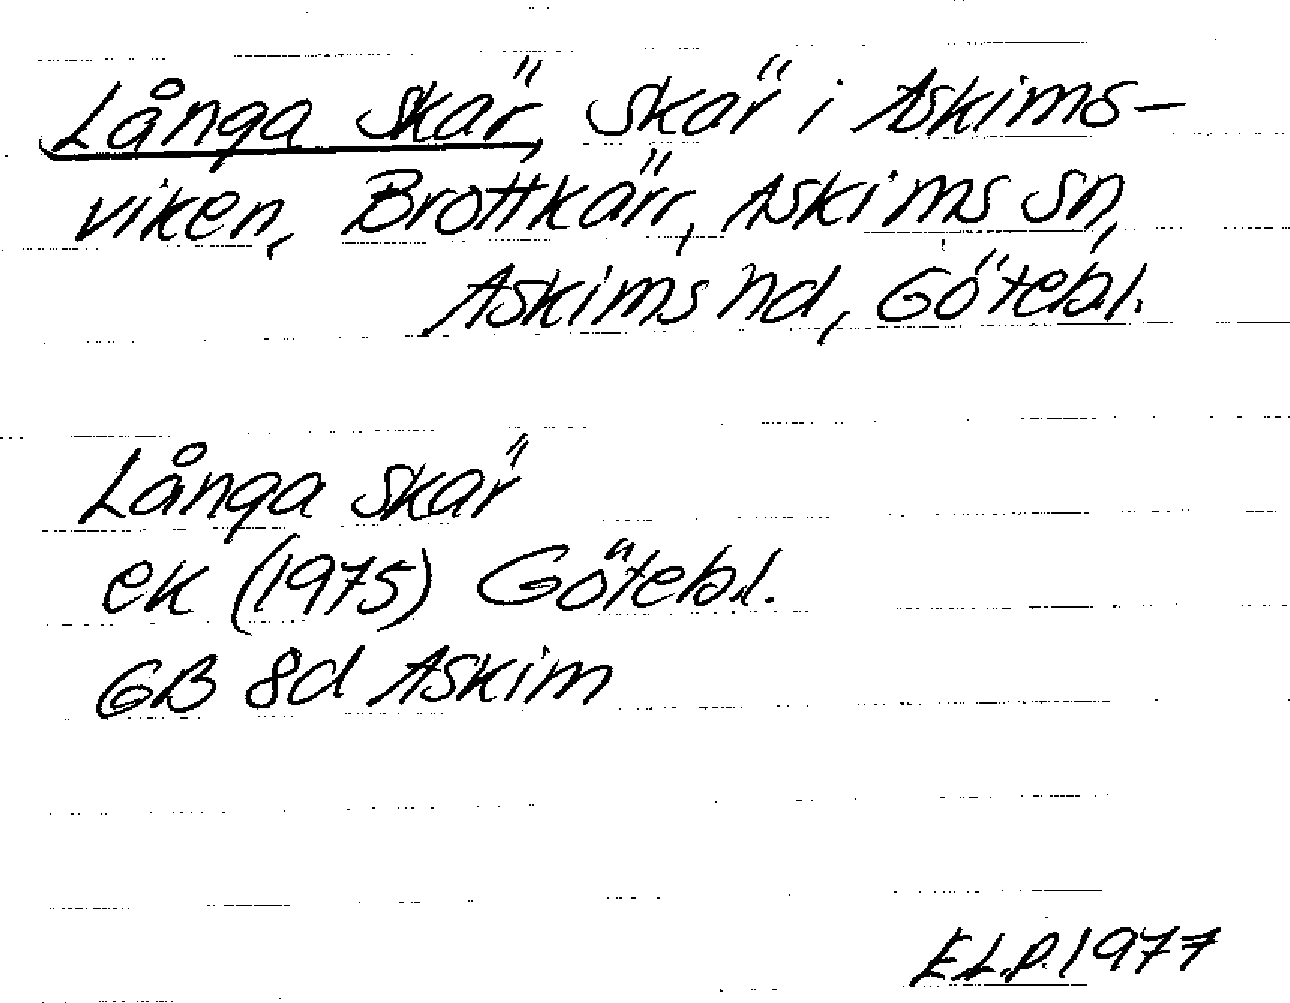 Långa skär, skär i Askims-
viken, Brottkärr, Askims sn,
Askims hd, Götebl.
Långa skär
ek (1975) Götebl.
GB 8d Askim
E.L.P. 1977